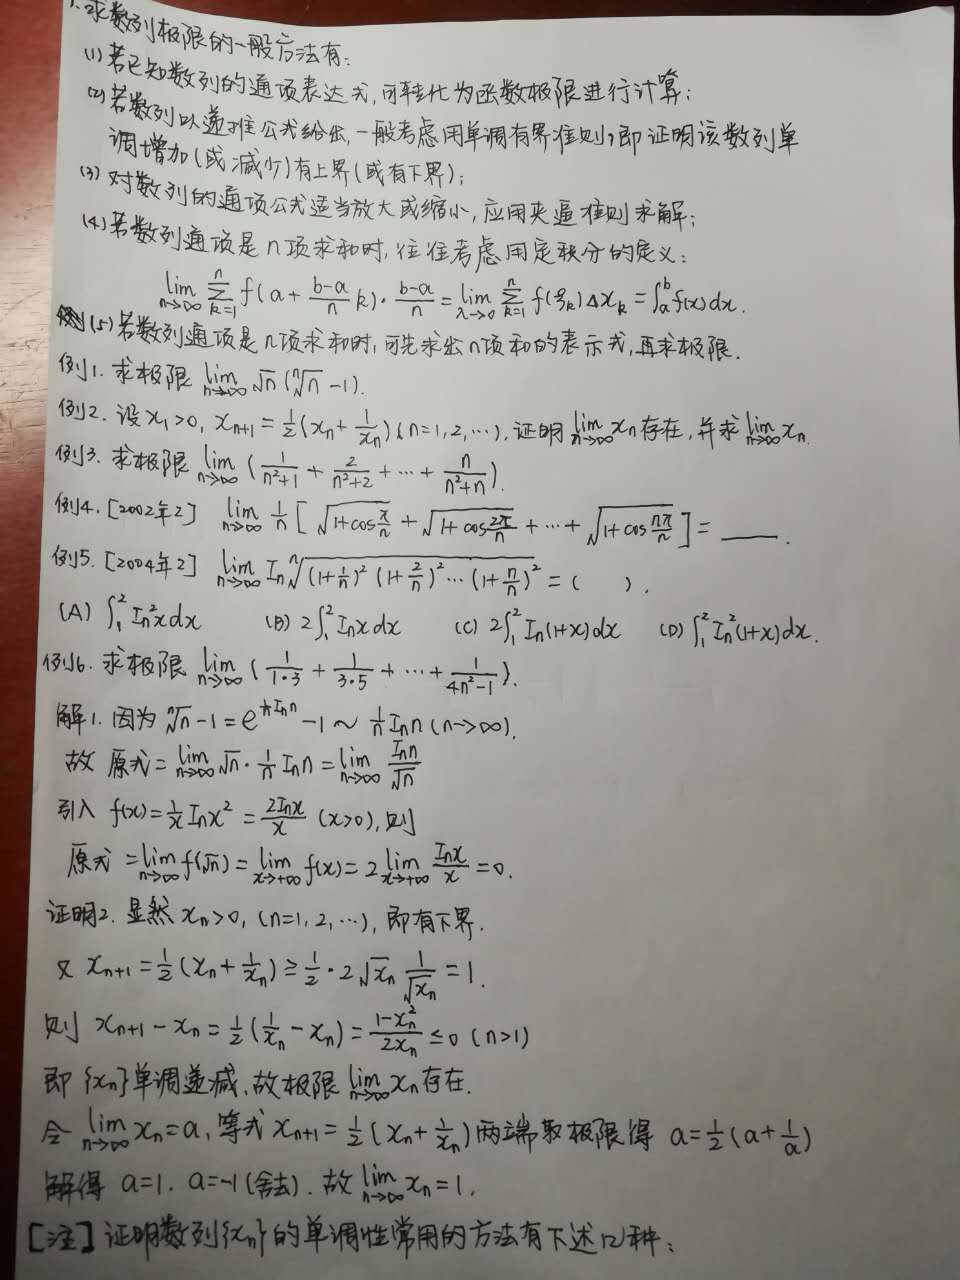 1. 求数列极限的一般方法有:
(1) 若已知数列的通项表达式,可转化为函数极限进行计算;
(2) 若数列以递推公式给出,一般考虑用单调有界准则,即证明该数列单
调增加(或减少)有上界(或有下界);
(3) 对数列的通项公式适当放大或缩小,应用夹逼准则求解;
(4) 若数列通项是n项求和时,往往考虑用定积分的定义:
lim_{n→∞} Σ_{k=1}^{n} f(a + (b-a)/n k)·(b-a)/n = lim_{λ→0} Σ_{k=1}^{n} f(ξ_k)Δx_k = ∫_a^b f(x)dx.
(5) 若数列通项是n项求和时,可先求出n项和的表示式,再求极限.
例1. 求极限 lim_{n→∞} √n (ⁿ√n - 1).
例2. 设 x₁>0, x_{n+1} = 1/2(x_n + 1/x_n) (n=1,2,…), 证明 lim_{n→∞} x_n 存在, 并求 lim_{n→∞} x_n.
例3. 求极限 lim_{n→∞} (1/(n²+1) + 2/(n²+2) + … + n/(n²+n)).
例4. [2002年2] lim_{n→∞} 1/n [√(1+cos π/n) + √(1+cos 2π/n) + … + √(1+cos nπ/n)] = ____.
例5. [2004年2] lim_{n→∞} In ⁿ√((1+1/n)² (1+2/n)² … (1+n/n)²) = ( ).
(A) ∫₁² In²x dx (B) 2∫₁² In x dx (C) 2∫₁² In(1+x)dx (D) ∫₁² In²(1+x)dx.
例6. 求极限 lim_{n→∞} (1/(1·3) + 1/(3·5) + … + 1/(4n²-1)).
解1. 因为 ⁿ√n - 1 = e^{1/n In n} - 1 ~ 1/n In n (n→∞).
故 原式 = lim_{n→∞} √n · 1/n In n = lim_{n→∞} In n/√n
引入 f(x) = 1/x In x² = 2In x/x (x>0), 则
原式 = lim_{n→∞} f(√n) = lim_{x→+∞} f(x) = 2 lim_{x→+∞} In x/x = 0.
证明2. 显然 x_n>0, (n=1,2,…), 即有下界.
又 x_{n+1} = 1/2(x_n + 1/x_n) ≥ 1/2 · 2√x_n 1/√x_n = 1.
则 x_{n+1} - x_n = 1/2(1/x_n - x_n) = (1-x_n²)/(2x_n) ≤ 0 (n>1)
即 {x_n} 单调递减, 故极限 lim_{n→∞} x_n 存在.
令 lim_{n→∞} x_n = a, 等式 x_{n+1} = 1/2(x_n + 1/x_n) 两端取极限得 a = 1/2(a + 1/a)
解得 a=1. a=-1 (舍去). 故 lim_{n→∞} x_n = 1.
[注] 证明数列{x_n}的单调性常用的方法有下述几种: